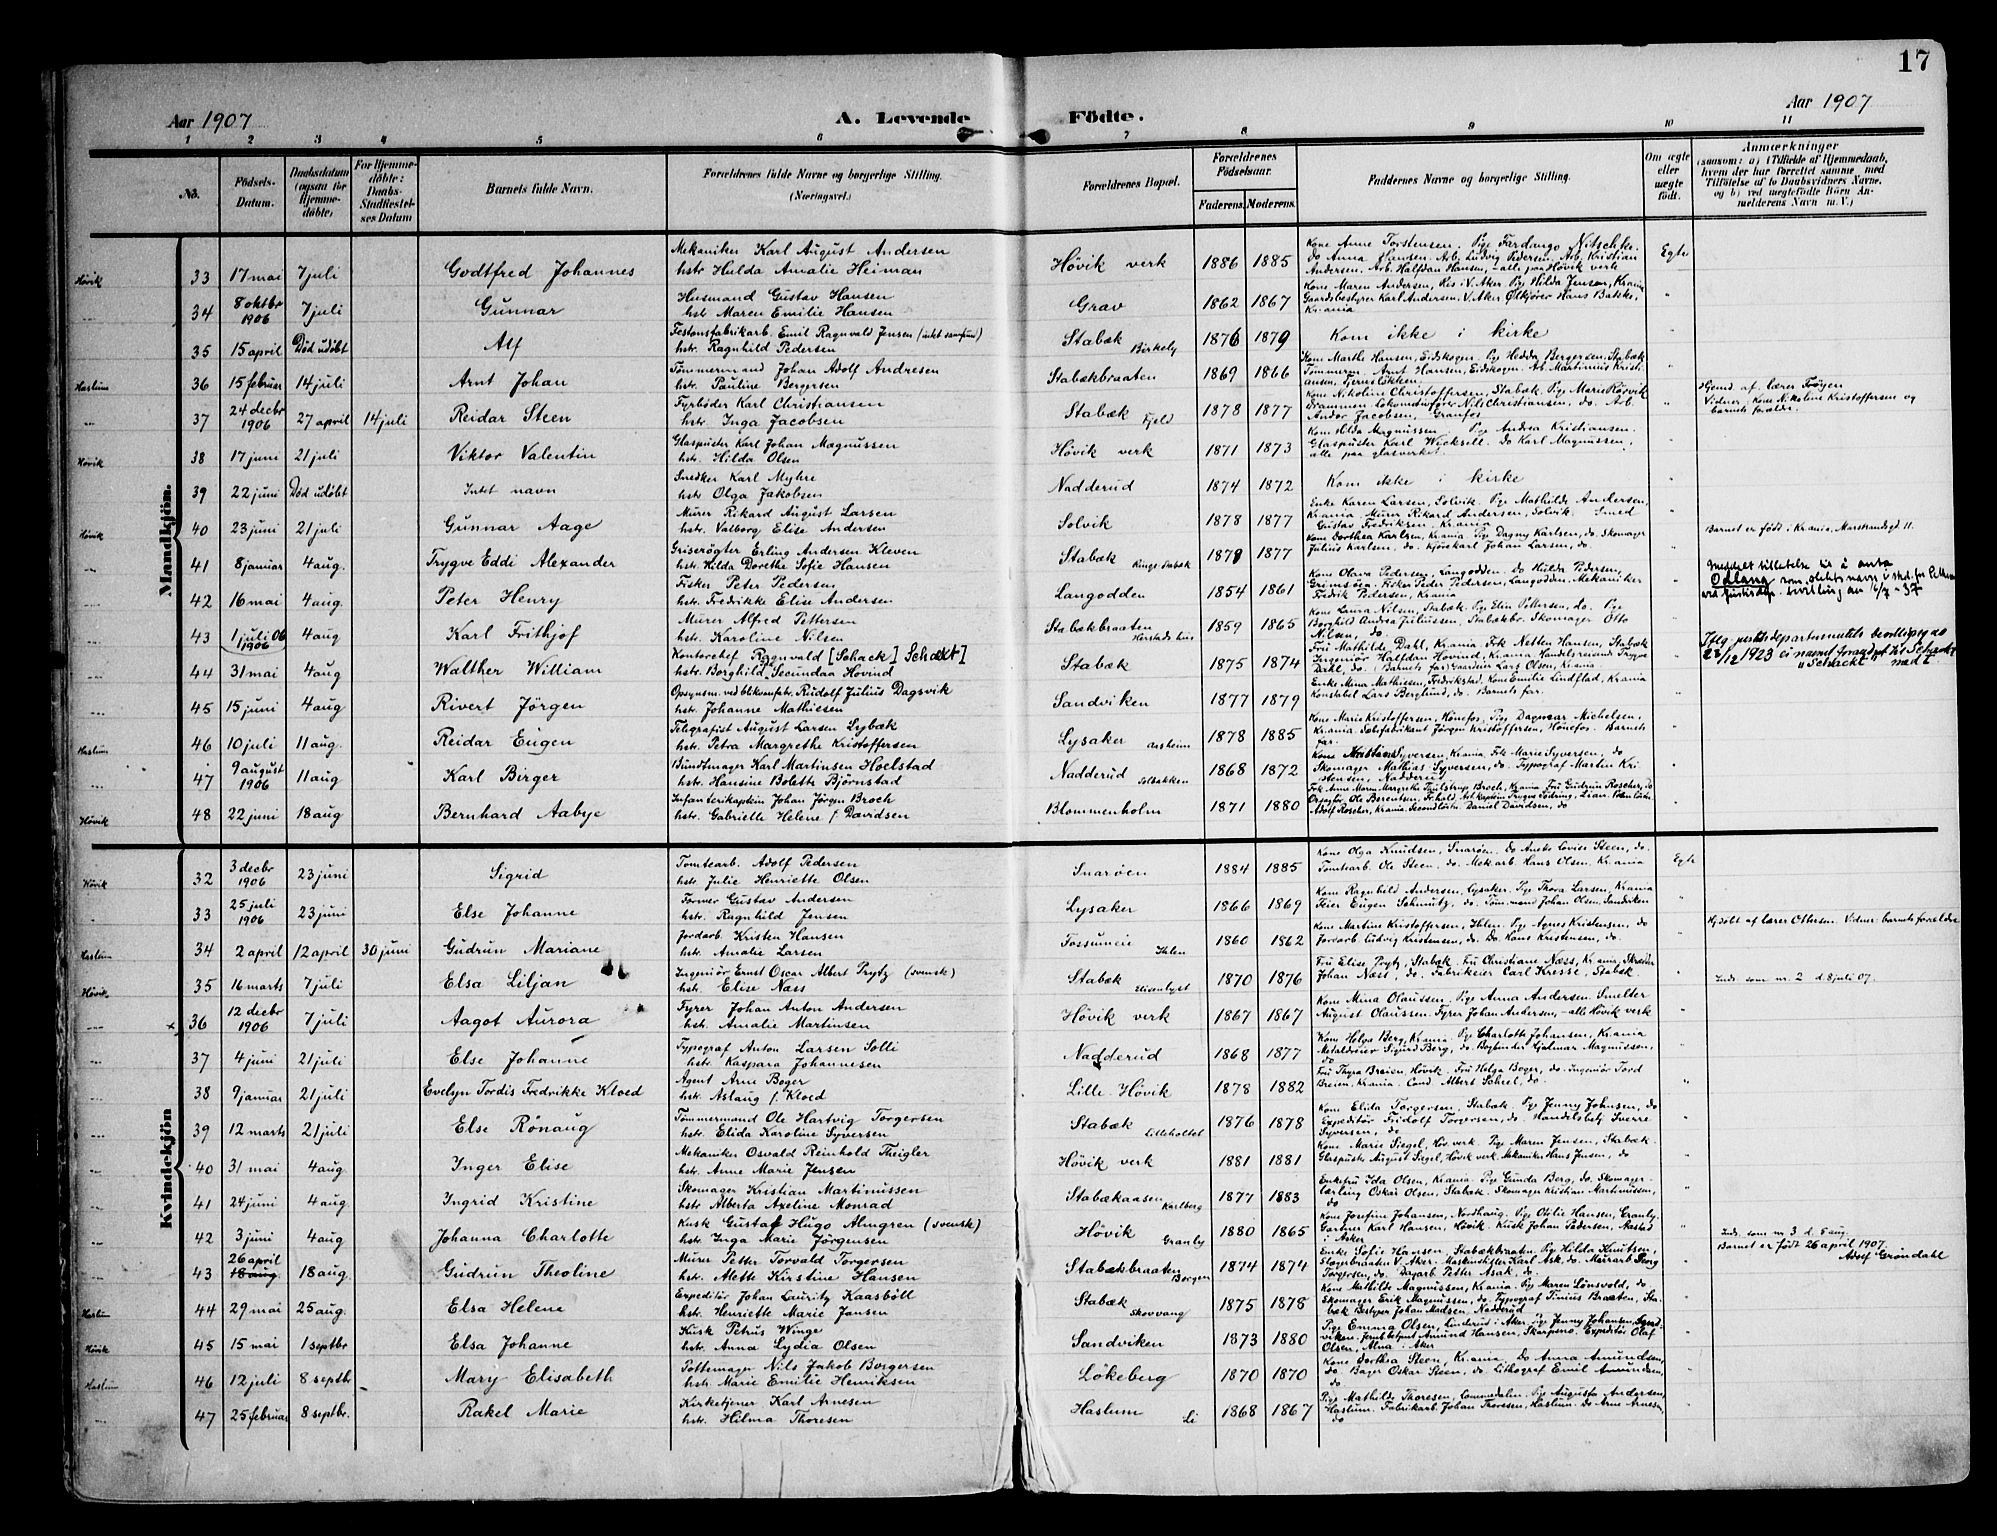 17
Aar 1907
A. Levende Födte.
Aar 1907
1 2 3 4 5 6 7 8 9 10 11
No.
Födsels-Datum.
Daabsdatum (ogsaa for Hjemme-döbte)
For Hjemme-döbte: Daabs-Stadfæstel-ses Datum
Barnets fulde Navn.
Forældrenes fulde Navne og borgerlige Stilling.
(Næringsvei.)
Forældrenes Bopæl.
Forældrenes Födselsaar.
Faderens. Moderens.
Faddernes Navne og borgerlige Stilling.
Om ægte eller uægte födt.
Anmærkninger
(saasom: a) i Tilfælde af Hjemmedaab, hvem der har forrettet samme, med Tilföielse af to Daabsvidners Navne, og b) ved uægtefödte Börn An-melderens Navn m. V.)
Mandkjön.
Hövik 33 17 mai 7 juli Godtfred Johannes Mekaniker Karl August Andersen
hstr Hulda Amalie Heiman Hövik verk 1886 1885 Kone Anne Torstensen. Pige Fardingo Nitschke.
do Anna Hansen. Arb. Ludvig Pedersen. Arb. Kristian
Andersen. Arb. Halfdan Hansen, - alle paa Hövik verk Egte
34 8 oktbr 1906 7 juli Gunnar Husmand Gustav Hansen
hstr Maren Emilie Hansen Grav 1862 1867 Kone Maren Andersen, V. Aker. Pige Hilda Jensen, Krania
Gaardsbestyrer Karl Andersen, V. Aker Ølkjörer Hans Bakke,
Krania "
35 15 april Död udöbt Alf Festonsfabrikarb. Emil Ragnvald Jensen
hstr. Ragnhild Pedersen Stabæk Birkely 1876 1879 Kom ikke i kirke "
Haslum 36 15 februar 14 juli Arnt Johan Tömmermand Johan Adolf Andresen
hstr. Pauline Bergersen Stabækbraaten 1869 1866 Kone Marthe Hansen, Eidskogen. Pige Hedda Bergersen, Stabæk
Tömmerm. Arnt Hansen, Eidskogen. Arb. Martinius Kristi-
ansen, Tjernslökken. "
37 24 decbr 1906 27 april 14 juli Reidar Steen Fyrböder Karl Christiansen
hstr. Inga Jacobsen Stabæk Fjeld 1878 1877 Kone Nikoline Christoffersen, Stabæk. Pige Marie Rösvik
Drammen. Lokomotivförer Nils Christiansen, do. Arb.
Andor Jacobsen, Granfos " Hjemd. af lærer Fröyen
Vidner. Kone Nikoline Kristoffersen og
barnets forældre.
Hövik 38 17 juni 21 juli Viktor Valentin Glaspuster Karl Johan Magnussen
hstr. Hilda Olsen Hövik verk 1871 1873 Kone Hilda Magnussen. Pige Andrea Kristiansen.
Glaspuster Karl Wecksell. do Karl Magnussen,
alle paa glasverket. "
39 22 juni Död udöbt Intet navn Snedker Karl Myhre
hstr. Olga Jakobsen Nadderud 1874 1872 Kom ikke i kirke "
Hövik 40 23 juni 21 juli Gunnar Aage Murer Rikard August Larsen
hstr. Valborg Elise Andersen Solvik 1878 1877 Enke Karen Larsen, Solvik. Pige Mathilde Andersen,
Krania Murer Rikard Andersen, Solvik. Smed
Gustav Fredriksen, Krania " Barnet er födt i Krania, Marstrandsgd 11.
41 8 januar 4 aug. Trygve Eddi Alexander Griserögter Erling Andersen Kleven
hstr. Hilda Dorethe Sofie Hansen Stabæk Ringe stabæk 1878 1877 Kone Dorthea Karlsen, Krania. Pige Dagny Karlsen, do. Skomager
Julius Karlsen, do. Kjörekarl Johan Larsen, do. "
42 16 mai 4 aug. Peter Henry Fisker Peter Pedersen
hstr. Fredrikke Elise Andersen Langodden 1854 1861 Kone Olava Pedersen, Langodden. do Hilda Pedersen,
Grimsöen. Fisker Peder Pedersen, Langodden. Mekaniker
Fredrik Pedersen, Krania " Meddelt tillatelse til å anta
Odlang som slektsnavn
43 1 juli 06 1906 4 aug Karl Frithjof Murer Alfred Pettersen
hstr. Karoline Nilsen Stabækbraaten Herstadshus 1859 1865 Kone Laura Nilsen, Stabæk. Pige Elin Pettersen, do. Pige
Borghild Andrea Juliussen, Stabækbr. Skomager Otto
Nilsen, do. "
44 31 mai 4 aug Walther William Kontorchef Ragnvald [Schack] Schackt]
hstr. Borghild Secundaa Hovind Stabæk 1875 1874 Frue Mathilde Dahl, Krania. Frk Netten Hansen, Stabæk
Ingeniör Halfdan Hovind, Krania, Handelsreisend Trygve
Dahl, do. Barnets far. Olsen, Krania " Iflg. justisdepartementets bevilling av
22/12 1923
45 15 juni 4 aug Rivert Jörgen Opsynsm. ved blikvenfabr. Rudolf Julius Dagsvik
hstr. Johanne Mathiesen Sandviken 1877 1879 Enke Mina Mathiesen, Fredrikstad. Kone Emilie Lindflad, Krania
Konstabel Lars Berglund, do. Barnets far. "
Haslum 46 10 juli 11 aug. Reidar Eugen Telegrafist August Larsen Lybæk
hstr. Petra Margrethe Kristoffersen Lysaker 1878 1885 Kone Marie Kristoffersen, Hönefos. Pige Dagmar Michelsen,
Krania. Jörgen Kristoffersen, Hönefos. Barnets
far. "
47 9 august 1906 11 aug. Karl Birger Bundtmager Karl Martinsen Hoelstad
hstr. Hansine Bolette Björnstad Nadderud Solbakken 1868 1872 Kone Kristiane Syversen, Krania. Frk Marie Syversen, do
Skomager Mathias Syversen, do. Typograf Martin Kri
stensen, Nadderud "
Hövik 48 22 juni 18 aug Bernhard Aabye Infanterikaptein Johan Jörgen Broch
hstr. Gabrielle Helene f. Davidsen Blommenholm 1871 1880 Broch, Krania. Fru Gudrun Roscher, do
Adolf Roscher, Krania. Secondlöitn. Daniel Davidsen, do "
Kvindekjön
Hövik 32 3 decbr 1906 23 juni Sigrid Tomtearb. Adolf Pedersen
hstr. Julie Henriette Olsen Snaröen 1884 1885 Kone Olga Knudsen, Snaröen. do Anette Lovise Steen, do.
Tomtearb. Ole Steen, do. Mek.arb. Hans Olsen, Krania Egte
33 25 juli 1906 23 juni Else Johanne Former Gustav Andersen
hstr. Ragnhild Jensen Lysaker 1866 1869 Kone Ragnhild Andersen, Lysaker. Pige Thora Larsen, Krania
Feier Eugen Schmütz, do. Tömmermand Johan Olsen, Sandviken "
Haslum 34 2 april 12 april 30 juni Gudrun Mariane Jordarb. Kristen Hansen
hstr. Amalie Larsen Fossumeie Ihlen 1860 1862 Kone Martine Kristoffersen, Ihlen. Pige Agnes Kristensen, do
Jordarb. Ludvig Kristensen, do. Do Hans Kristensen, do. " Hjdöbt af lærer Ottersen. Vidner barnets forældre
Hövik 35 16 marts 7 juli Elsa Liljan Ingeniör Ernst Oscar Albert Prytz (svensk)
hstr. Elise Næss Stabæk Elisenlyst 1870 1876 Fru Elise Prytz, Stabæk. Fru Christiane Næss, Krania, Skræder
Johan Næss, do. Fabrikeier Carl Kresse, Stabæk " Inds. som nr. 2 d. 8 juli 07.
36 12 decbr 1906 7 juli Aagot Aurora Fyrer Johan Anton Andersen
hstr. Amalie Martinsen Hövik verk 1867 1867 Kone Mina Olaussen. Pige Anna Andersen. Smelter
August Olaussen. Fyrer Johan Andersen, - alle Hövik verk "
37 4 juni 21 juli Else Johanne Typograf Anton Larsen Solli
hstr. Kaspara Johannesen Nadderud 1868 1877 Kone Helga Berg, Krania. Pige Charlotte Johansen, Krania
Metaldreier Sigurd Berg, do. Bogbinder Hjalmar Magnussen,
do "
38 9 januar 21 juli Evelyn Tordis Fredrikke Kloed Agent Arne Boger
hstr. Aslaug f. Kloed Lille Hövik 1878 1882 Fru Thyra Breien, Hövik. Fru Helga Boger, do. Ingeniör Tord
Breien, Krania. Cand. Albert Schrel, do. "
39 12 marts 21 juli Else Rönaug Tömmermand Ole Hartvig Torgersen
hstr. Elida Karoline Syversen Stabæk Lilleholtet 1876 1878 Kone Elida Torgersen, Stabæk. Pige Jenny Johnsen, do
Expeditör Fridolf Torgersen, do Handelsbetj Sverre
Syversen, do "
40 31 mai 4 aug. Inger Elise Mekaniker Osvald Reinhold Theigler
hstr. Anne Marie Jensen Hövik verk 1881 1881 Kone Marie Siegel, Höv. verk. Pige Maren Jensen, Stabæk.
Glaspuster August Siegel, Hövik verk. Mekaniker Hans Jensen, do "
41 24 juni 4 aug. Ingrid Kristine Skomager Kristian Martinussen
hstr. Alberta Axeline Monrad Stabækaasen Karlberg 1877 1883 Enkefru Ida Olsen, Krania. Pige Gunda Berg, do. Skomager-
lærling Oskar Olsen, Stabæk. Skomager Kristian Martinussen,
do "
42 3 juni 4 aug Johanna Charlotte Kusk Gustaf Hugo Almgren (svensk)
hstr. Inga Marie Jörgensen Hövik Granly 1880 1865 Kone Josefine Johansen, Nordhaug. Pige Otelie Hansen, Granly.
Gartner Karl Hansen, Hövik. Kusk Johan Pedersen, Aastad
i Asker " Inds. som nr. 3 d. 5 aug.
43 26 april 18 aug. 18 aug. Gudrun Theoline Murer Petter Torvald Torgersen
hstr. Alette Kirstine Hansen Stabækbraaten Borgen 1874 1874 Enke Sofie Hansen, Stabækbraaten. Pige Hilda Knutsen,
V. Aker. Maskinstifter Karl Ask, do. Murerarb Georg
Torgersen, do. Dagarb. Petter Asak, do. " Barnet er födt 26 april 1907.
Adolf Gröndahl
Haslum 44 29 mai 25 aug. Elsa Helene Expeditör Johan Lauritz Kaasböll
hstr. Henriette Marie Jansen Stabæk Skovvang 1875 1878 Kone Mathilde Magnussen, Krania. Pige Maren Lönsvold, do
Skomager Erik Magnussen, do. Typograf Tinius Braaten, Sta-
bæk Bestyrer Johan Madsen, Nadderud "
Hövik 45 15 mai 1 septbr Elsa Johanne Kusk Petrus Winge
hstr. Anna Lydia Olsen Sandviken 1873 1880 Pige Emma Olsen, Linderud i Aker. Pige Jenny Johansen, Sand-
viken. Amund Hansen, Skarpsno. Expeditör Olaf
Olsen, Alna i Aker "
Haslum 46 12 juli 8 septbr Mary Elisabeth Pottemager Nils Jakob Borgersen
hstr. Marie Emilie Henriksen Lökeberg 1870 1870 Kone Dorthea Steen, Krania. Do Anna Amundsen,
do Bager Oskar Steen, do. Lithograf Emil Amundsen,
do "
47 25 februar 8 septbr. Rakel Marie Kirketjener Karl Arnesen
hstr. Hilma Thoresen Haslum Li 1868 1867 Pige Mathilde Thoresen, Lommedalen. Pige Augusta Andersen,
Haslum. Fabrikarb. Johan Thoresen, Haslum. Do Arne Arnesen,
do "